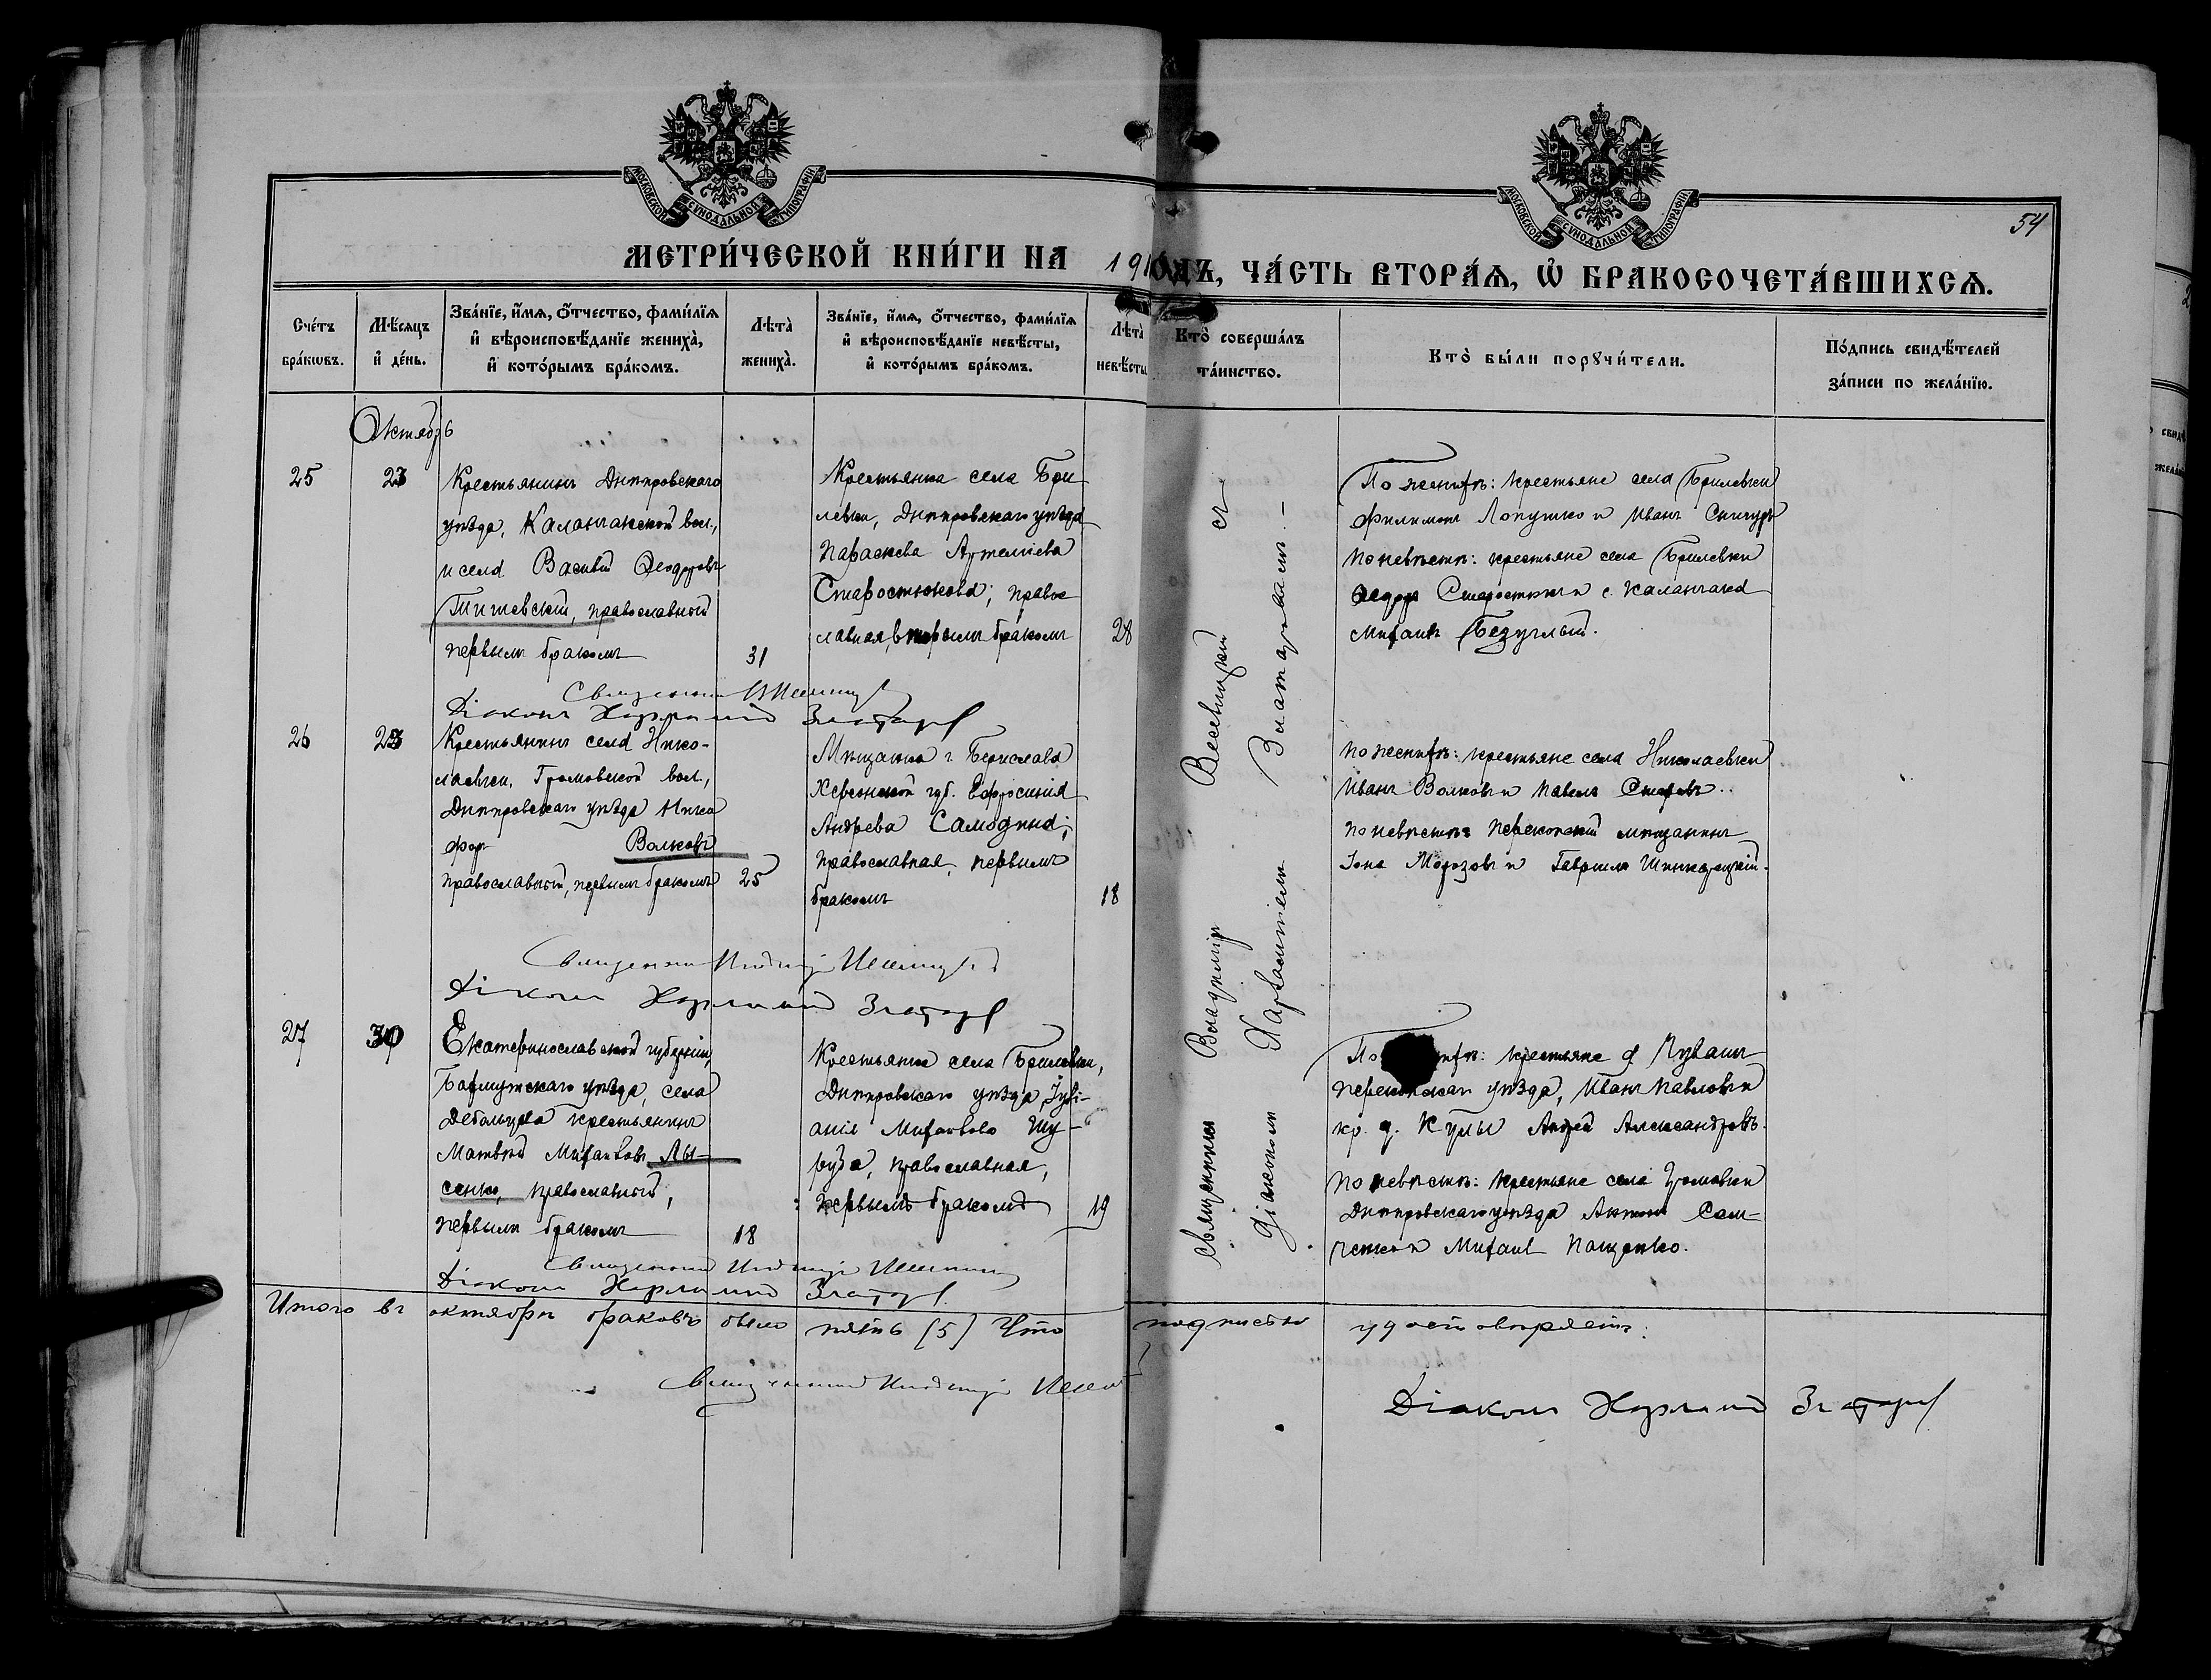 МОСКОВСКОЙ СУНОДАЛЬНОЙ ТИПОГРАФІИ
МОСКОВСКОЙ СУНОДАЛЬНОЙ ТИПОГРАФІИ
54
МЕТРИ́ЧЕСКОЙ КНИ́ГИ НА 191 ОДЪ, ЧА́СТЬ ВТОРА́Я, Ѡ БРАКОСОЧЕТА́ВШИХСЯ.
Сче́тъ бра́кѡвъ.
Мѣ́сяцъ и де́нь.
Зва́нїе, и́мя, о́тчество, фами́лїя и вѣроисповѣ́данїе жениха̀, и кото́рымъ бра́комъ.
Лѣта̀ жениха̀.
Зва́нїе, и́мя, о́тчество, фами́лїя и вѣроисповѣ́данїе невѣ́сты, и кото́рымъ бра́комъ.
Лѣта̀ невѣ́сты
Кто̀ соверша́лъ та́инство.
Кто̀ бы́ли порꙋчи́тели.
По́дпись свидѣ́телей за́писи по жела́нїю.
Октябрь
25
23
Крестьянинъ Днѣпровскаго
уѣзда, Каланчакской вол.,
и села Василій Ѳеодоровъ
Тишевскій, православный
первымъ бракомъ
31
Крестьянка села Бри-
левки, Днѣпровскаго уѣзда
Параскева Артеміева
Старостюкова; правос
лавная, первымъ бракомъ
28
По женихѣ: крестьяне села Брилевки
Филимонъ Лопушко и Иванъ
По невѣстѣ: крестьяне села Брилевки
Ѳедоръ Старостюкъ и с. Каланчака
Михаилъ Безуглый.
Діаконъ Харлампій Златаровъ
26
23
Крестьянинъ села Нико-
лаевки, Громовской вол.,
Днѣпровскаго уѣзда Ники
форъ Волковъ
православный, первымъ бракомъ
25
Мѣщанка г. Берислава
Херсонской губ. Евфросинія
Андреева Самодина;
православная, первымъ
бракомъ
18
По женихѣ: крестьяне села Николаевки
Иванъ Волковъ и Павелъ
По невѣстѣ: Перекопскій мѣщанинъ
Іона Морозовъ и Гавріилъ
Діаконъ Харлампій Златаровъ
27
30
Екатеринославской губерніи,
Бахмутскаго уѣзда, села
Дебальцева крестьянинъ
Матвѣй Михаиловъ Лы-
сенко, православный,
первымъ бракомъ
18
Крестьянка села Брилевки,
Днѣпровскаго уѣзда, Іулі-
анія Михайлова Шу-
руба, православная,
первымъ бракомъ
19
По крестьяне д.
Перекопскаго уѣзда, Иванъ Павловъ и
кр. д. Андрей Александровъ.
По невѣстѣ: крестьяне села Громовки
Днѣпровскаго уѣзда Антонъ Сем-
ченко и Михаилъ Пащенко.
Діаконъ Харлампій Златаровъ
Священникъ Владиміръ Весевицкій съ
Діакономъ Харлампіемъ Златаровымъ.—
Итого въ октябрѣ браковъ было пять (5) Что подписью удостовѣряемъ:
Діаконъ Харлампій Златаровъ